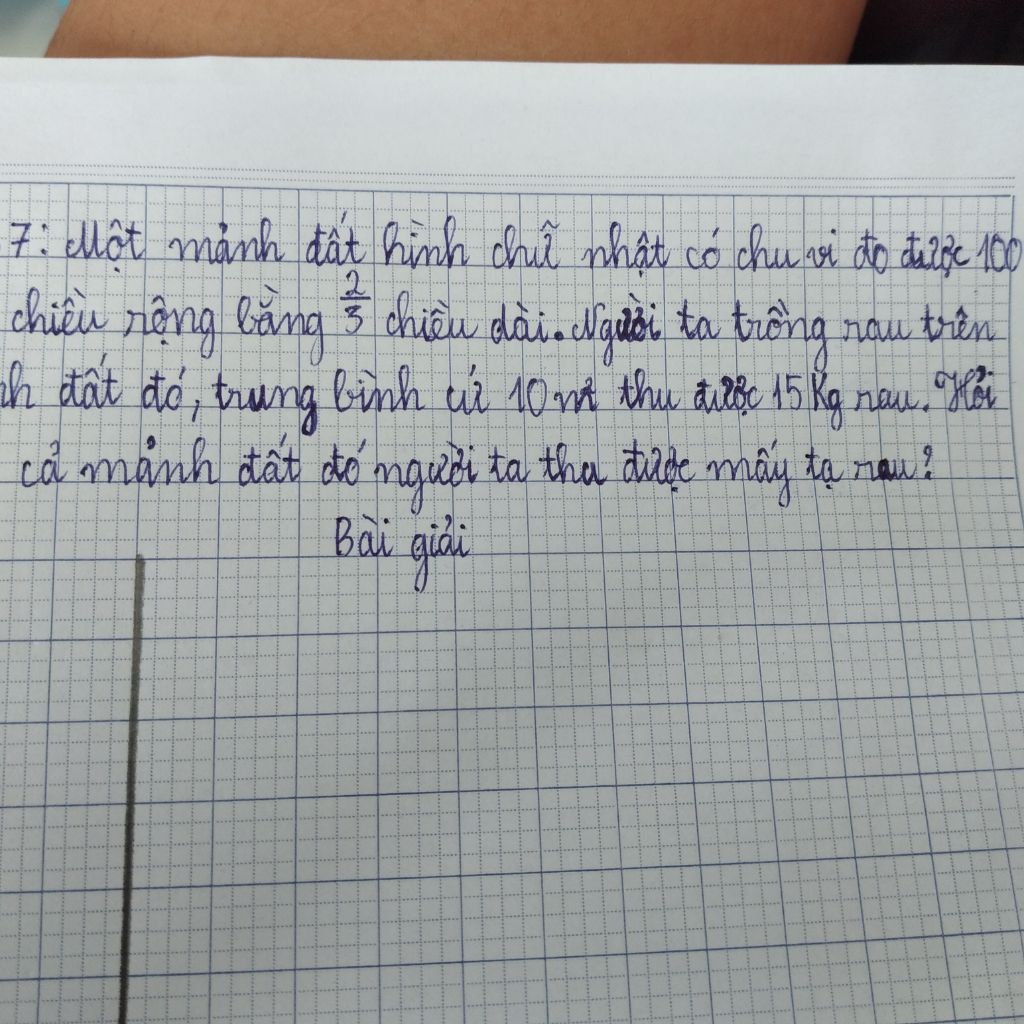 7: Một mảnh đất hình chữ nhật có chu vi đo được 100
chiều rộng bằng 2/3 chiều dài. Người ta trồng rau trên
đất đó, trung bình cứ 10 m² thu được 15 Kg rau. Hỏi
cả mảnh đất đó người ta thu được mấy tạ rau?
Bài giải